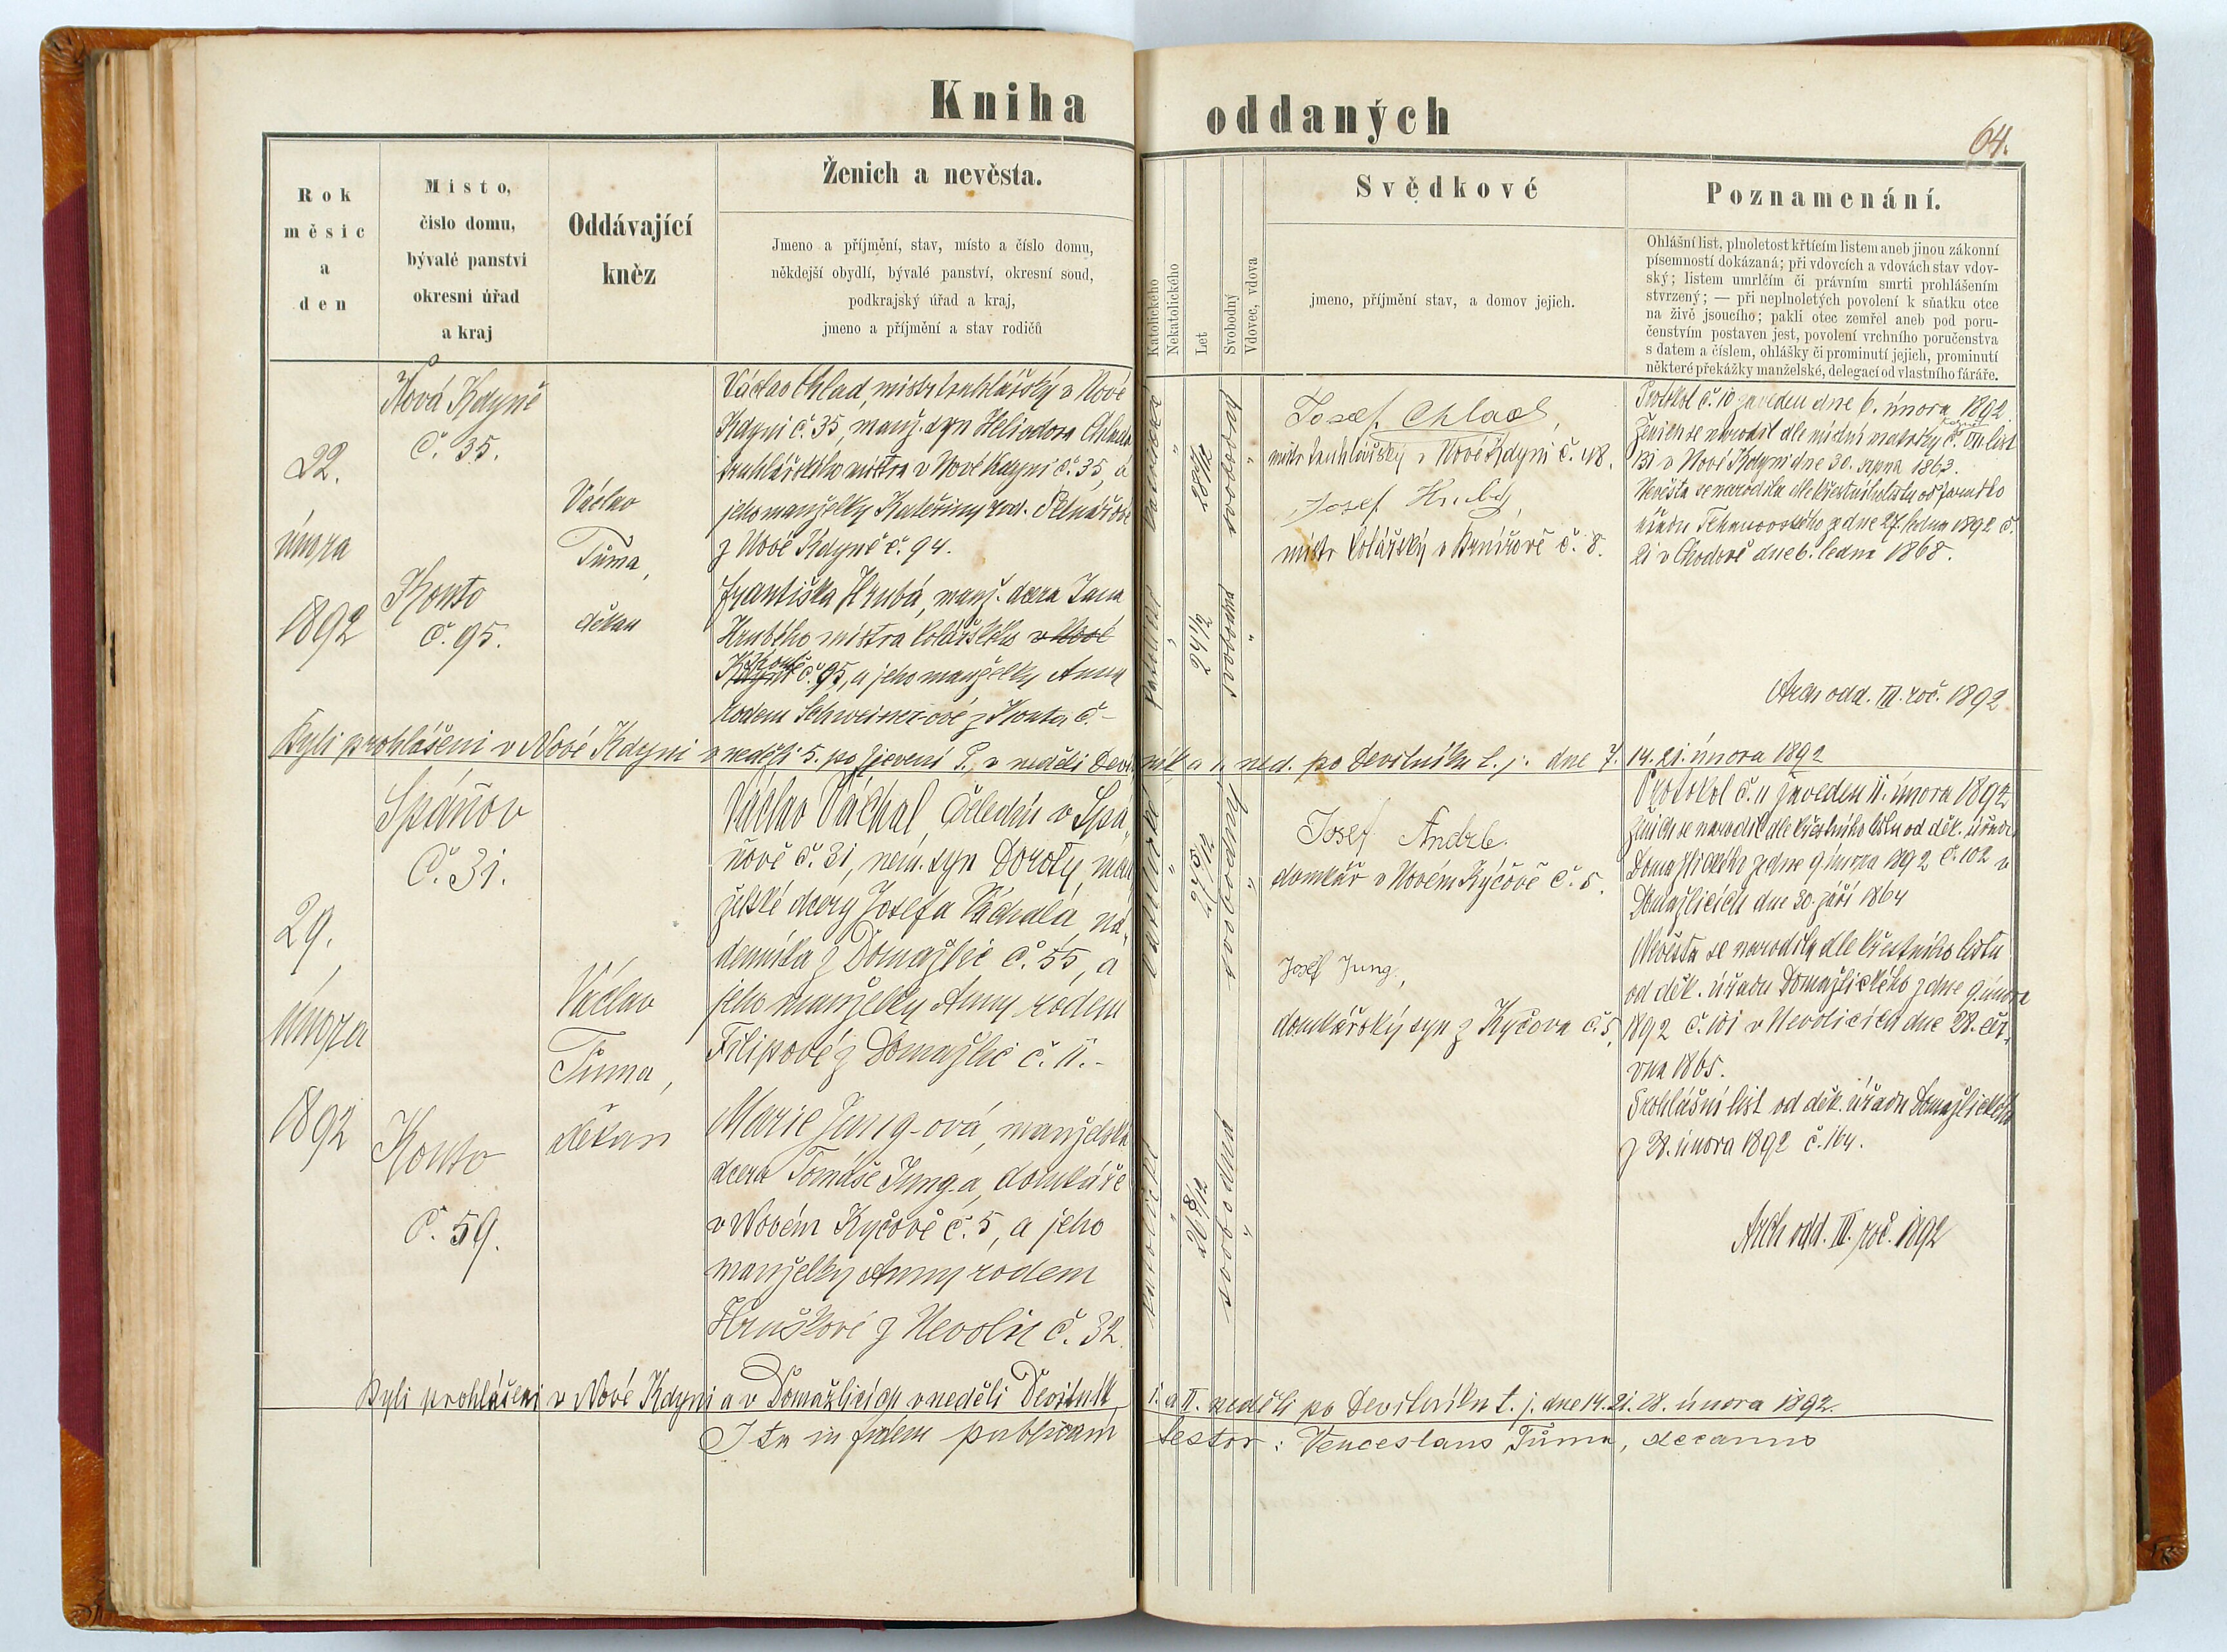 Kniha oddaných
64.
Rok
měsíc
a
den
Místo,
číslo domu,
bývalé panství
okresní úřad
a kraj
Oddávající
kněz
Ženich a nevěsta.
Jmeno a příjmění, stav, místo a číslo domu,
někdejší obydlí, bývalé panství, okresní soud,
podkrajský úřad a kraj,
jmeno a příjmění a stav rodičů
Katolického
Nekatolického
Let
Svobodný
Vdovec, vdova
Svědkové
jmeno, příjmění stav, a domov jejich.
Poznamenání.
Ohlášní list, plnoletost křtícím listem aneb jinou zákonní
písemností dokázaná; při vdovcích a vdovách stav vdov-
ský; listem umrlčím či právním smrti prohlášením
stvrzený; — při neplnoletých povolení k sňatku otce
na živě jsoucího; pakli otec zemřel aneb pod poru-
čenstvím postaven jest, povolení vrchního poručenstva
s datem a číslem, ohlášky či prominutí jejich, prominutí
některé překážky manželské, delegací od vlastního faráře.
22.
února
1892
Nová Kdyně
č. 35.
Kouto
č. 95.
Václav
Tůma,
děkan
Václav Chlad, mistr truhlářský v Nové
Kdyni č. 35, manž. syn Heliodora Chlada
truhlářského mistra v Nové Kdyni č. 35, a
jeho manželky Kateřiny roz.
z Nové Kdyně č. 94.
Františka Hrubá, manž. dcera Jana
Hrubého mistra kolářského v Nové
Kdyni Koutě č. 95, a jeho manželky Anny
rodem Schweiner-ové z Kouta č. -
katolické
28 5/12
svobodný
katolické
24 1/12
svobodná
Josef Chlad,
mistr truhlářský v Nové Kdyni č. 48.
Josef Hrubý,
mistr kolářský v Brnířově č. 8.
Protokol č. 10 zaveden dne 6. února 1892
Ženich se narodil dle místní matriky č. III list
131 v Nové Kdyni dne 30. srpna 1863.
Nevěsta se narodila dle křestního listu od farního
úřadu zdne 27. ledna 1892 č.
21 v Chodově dne 6. ledna 1868.
Arch odd. III. roč. 1892
Byli prohlášeni v Nové Kdyni v neděli 5. po Zjevení P., v neděli Devítník a 1. ned. po Devítníku t. j. dne 7. 14. 21. února 1892
29.
února
1892
Spáňov
Č. 31.
Kouto
č. 59.
Václav
Tůma,
děkan
Václav Váchal, čeledín v Spá-
ňově č. 31, nem. syn Doroty, man-
želské dcery Josefa Váchala, ná-
denníka z Domažlic č. 55, a
jeho manželky Anny rodem
Filipové z Domažlic č. 11.-
Marie Jung-ová, manželská
dcera Tomáše Jung-a, domkáře
v Novém Kyčově č. 5, a jeho
manželky Anny rodem
Hruškové z Nevolic č. 32.
katolické
27 5/12
svobodný
katolické
26 8/12
svobodná
Josef Andrle.
domkář v Novém Kyčově č. 5.
Josef Jung,
domkářský syn z Kyčova č. 5,
Protokol č. 11 zaveden 11. února 1892
Ženich se narodil dle křestního listu od děk. úřadu
Domažlického zdne 9. února 1892 č. 102 v
Domažlicích dne 30. září 1864
Nevěsta se narodila dle křestního listu
od děk. úřadu Domažlického zdne 9. února
1892 č. 101 v Nevolicích dne 28. čer-
vna 1865.
Prohlášní list od děk. úřadu Domažlického
z 28. února 1892 č. 164.
Arch odd. III. roč. 1892
Byli prohlášeni v Nové Kdyni a v Domažlicích v neděli Devítník, I. a II. neděli po Devítníku t. j. dne 14. 21. 28. února 1892.
Ita in fidem publicam testor: Venceslaus Tůma, decanus